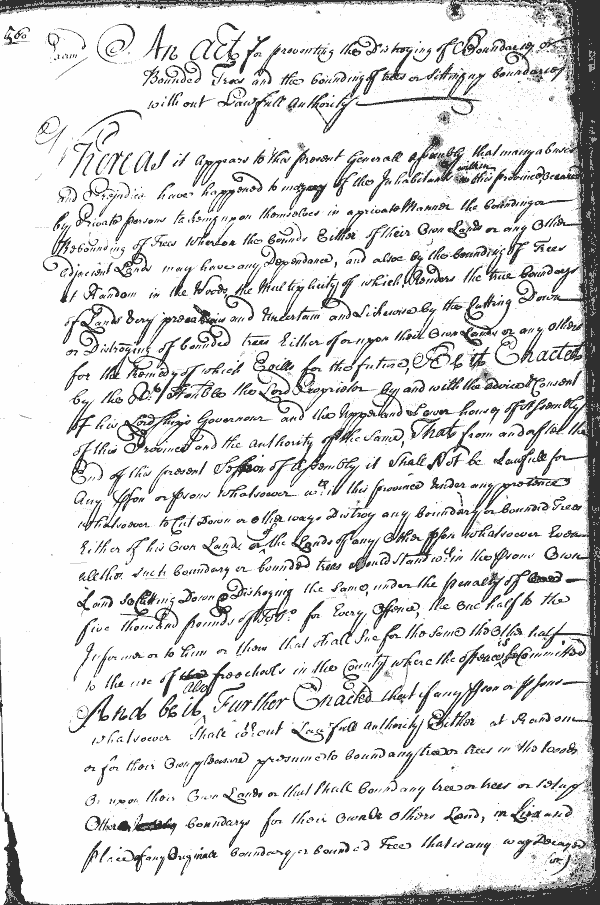 An Act for preventing the Distroying of Boundarys or
Bounded Trees and the bounding of trees or Setting up boundarys
without Lawfull Authority
Whereas it Appears to this present Generall Assembly that many abuses
and Prejudices have happened to many of the Inhabitants within this Province
by Private persons takeing upon themselves in a private Manner the bounding or
Rebounding of Trees whereon the bounds Either of their Own Lands or any Other
Adjacent Lands may have any Dependance, and alsoe by the bounding of Trees
at Random in the Woods, the Multiplicity of which Renders the true boundarys
of Lands Very precarious and Uncertain and Likewise by the Cutting Down
or Distroying of bounded trees Either of or upon their Own Lands or any others
for the remedy of which Evills for the future, Be it Enacted
by the Rt. Honble the Lord Proprietor by and with the advice & Consent
of his Lordships Governour and the upper and Lower houses of Assembly
of this Province and the Authority of the Same, That from and after the
End of this present Session of Assembly it Shall Not be Lawfull for
Any pson or psons Whatsoever win this province Under any pretence
whatsoever to Cut Down or otherways Distroy any boundary or bounded Trees
Either of his Own Lands or the Lands of any Other pson whatsoever Even
altho such boundary or bounded trees should stand win the psons Own
Land so Cutting Down or Distroying the Same, under the penalty of
five thousand pounds of Tobo for Every Offence, the one half to the
Informer or to him or them that Shall Sue for the Same the Other half
to the use of free schools in the County where the offence is Committed
And be it also Further Enacted that if any pson or psons
whatsoever Shall wthout Lawfull authority Either at Random
or for their Own pleasure presume to bound any tree or trees in the woods
Or upon their Own Lands or that Shall bound any tree or trees or set up
Other boundarys for their Own or Others Land, in Lieu and
place of any Originall boundary or bounded Tree that is any way Decayed